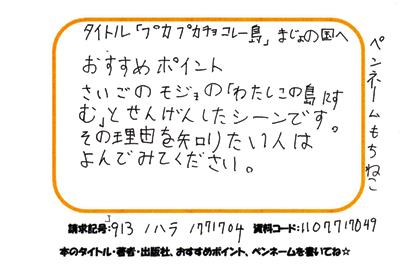 タイトル「プカプカチョコレー島」まじょの国へ
おすすめポイント
さいごのモジョの「わたしこの島にす
む」とせんげんしたシーンです。
その理由を知りたい人は
よんでみてください。
ペンネームもちねこ
請求記号:913 ノハラ 1771704 資料コード:1107717049
本のタイトル・著者・出版社、おすすめポイント、ペンネームを書いてね☆